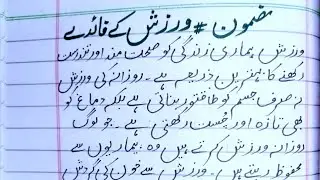 مضمون # ورزش کے فائدے
ورزش ہماری زندگی کو صحت مند اور تندرست
رکھنے کا بہترین ذریعہ ہے۔ روزانہ کی ورزش
نہ صرف جسم کو طاقتور بناتی ہے بلکہ دماغ کو
بھی تازہ اور چُست رکھتی ہے۔ جو لوگ
روزانہ ورزش کرتے ہیں وہ بیماریوں سے
محفوظ رہتے ہیں۔ ورزش سے خون کی گردش